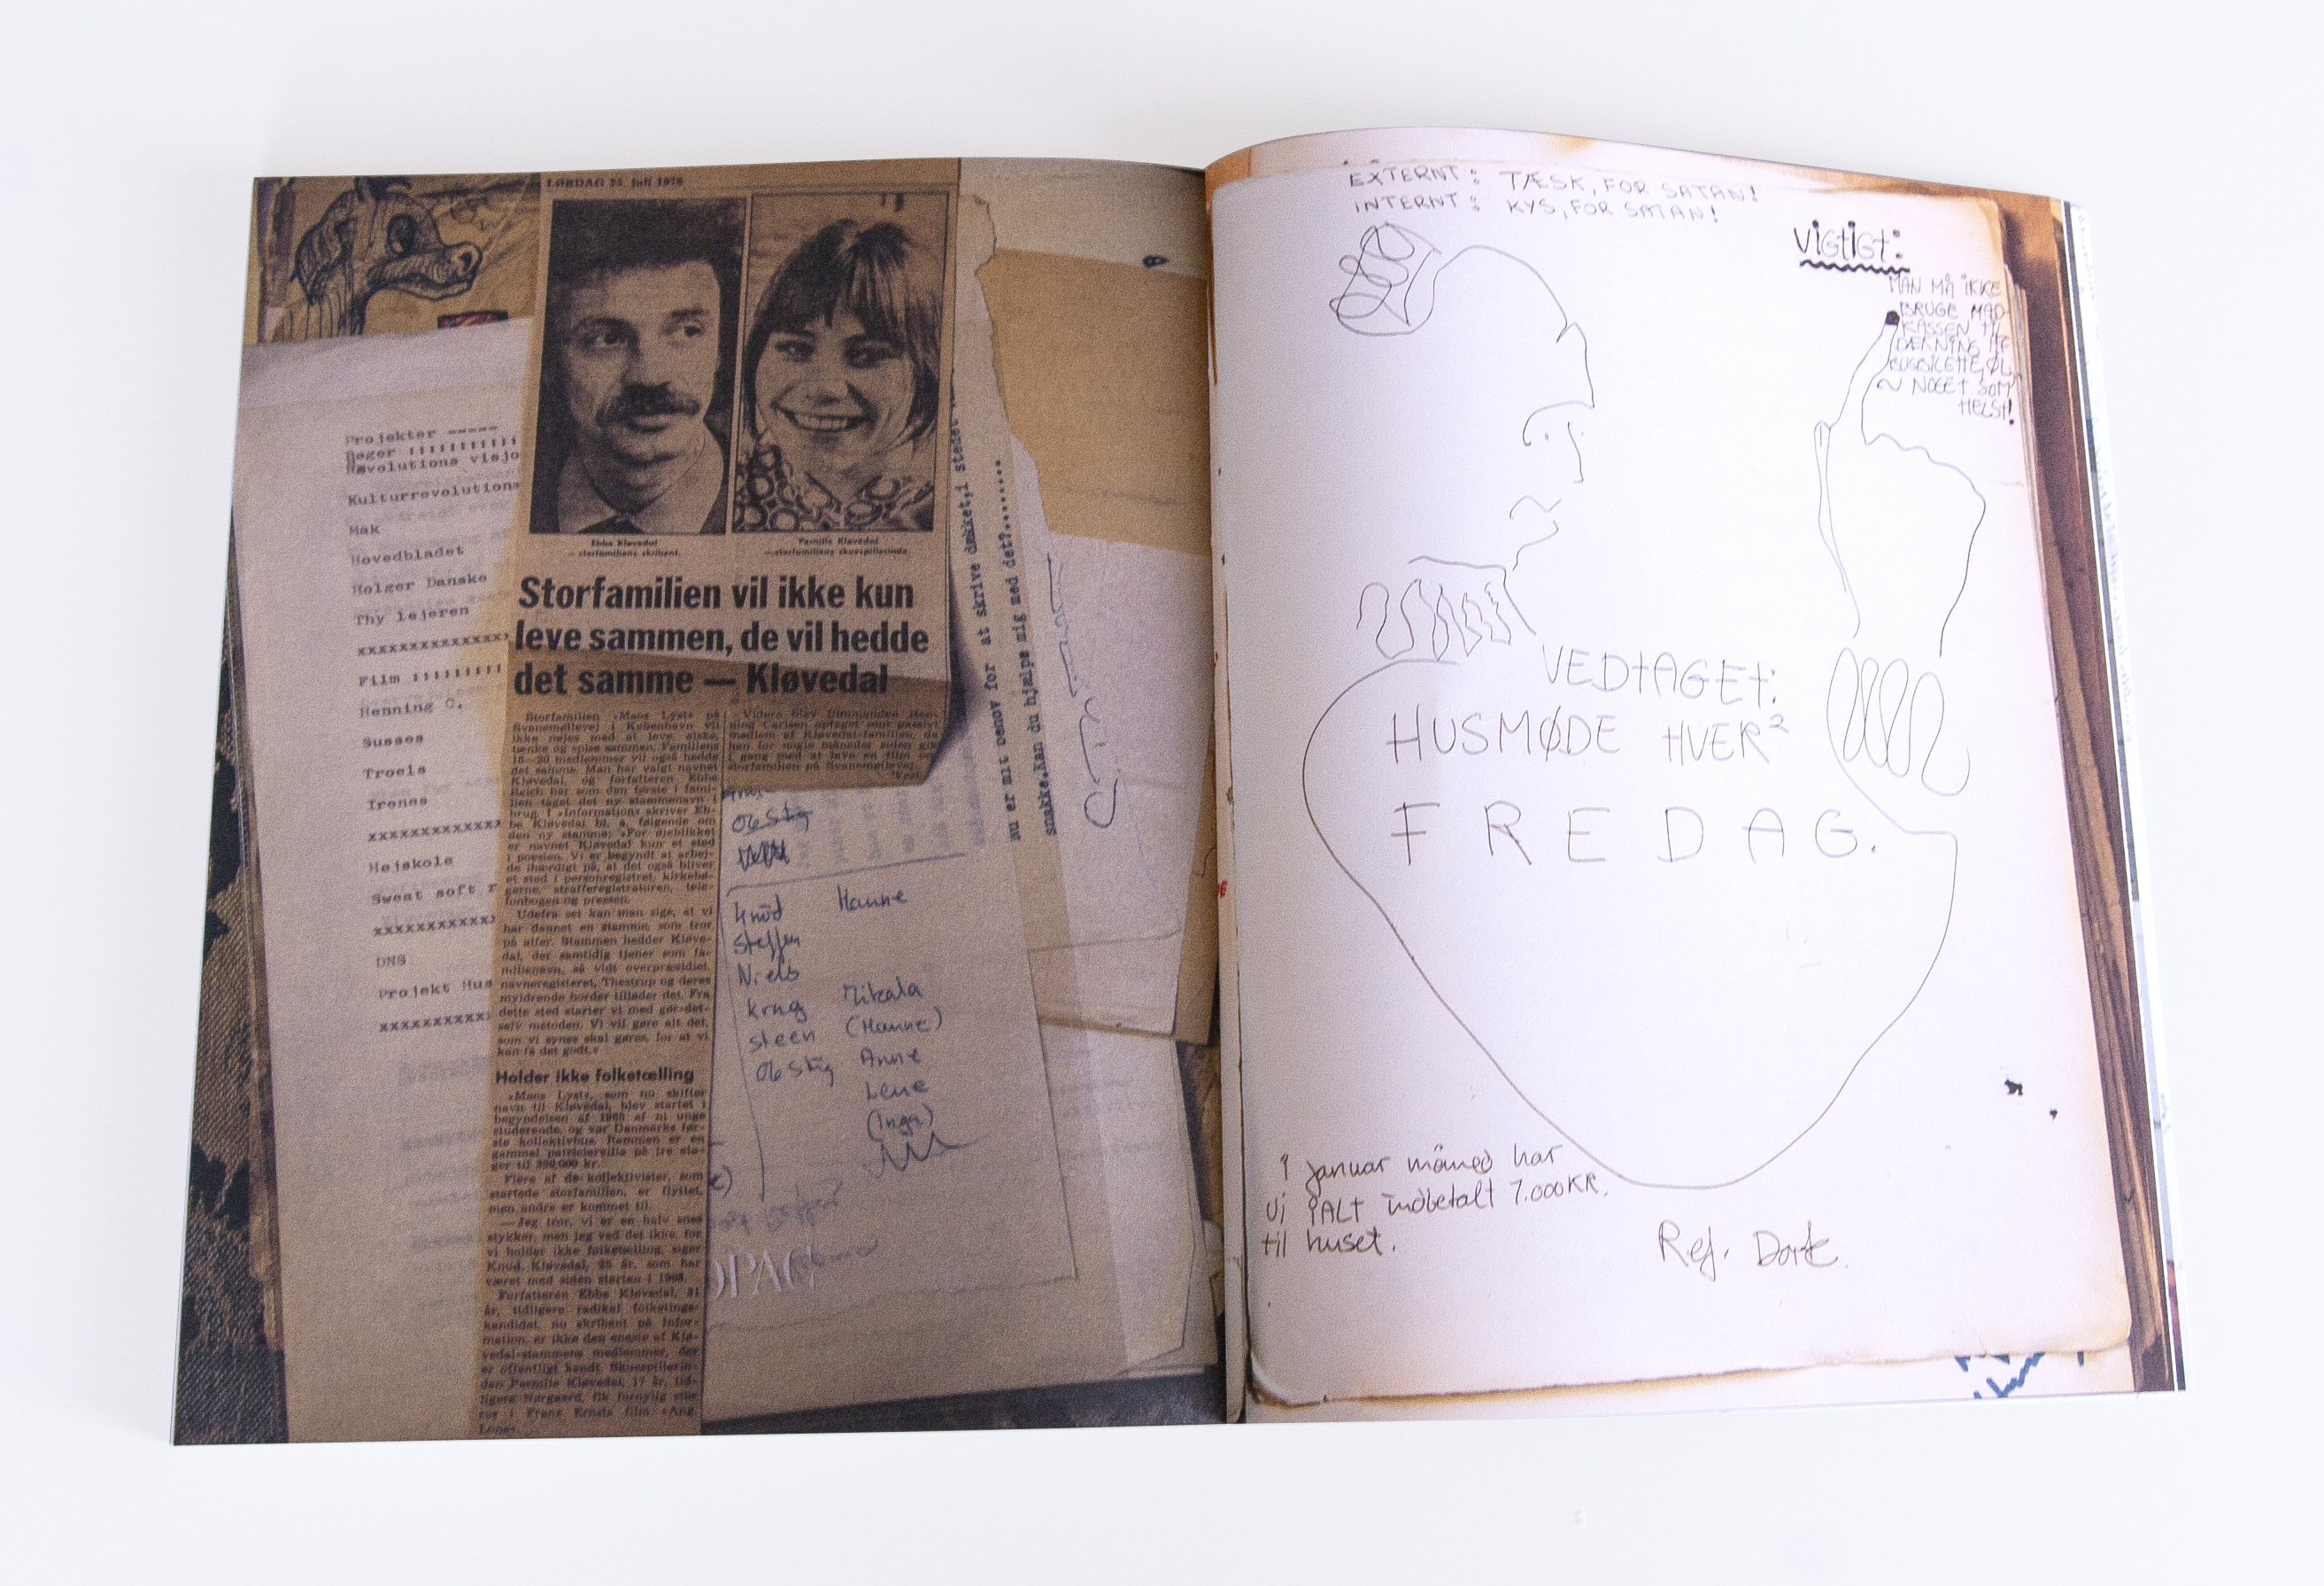 LØRDAG 25. juli 1970
Projekter -----
Bøger
Revolutions visjo
Kulturrevolutions
Mak
Hovedbladet
Holger Danske
Thy lejeren
xxxxxxxxxxxxx
Film
Henning C.
Susses
Troels
Irenes
xxxxxxxxxxxxx
Højskole
Sweat soft r
xxxxxxxxxxx
DNS
Projekt Hus
xxxxxxxxxxx
Ebbe Kløvedal
— storfamiliens skribent.
Pernille Kløvedal
— storfamiliens skuespillerinde.
Storfamilien vil ikke kun
leve sammen, de vil hedde
det samme — Kløvedal
Storfamilien »Maos Lyst« på
Svanemøllevej i København vil
ikke nøjes med at leve, elske,
tænke og spise sammen. Familiens
18—20 medlemmer vil også hedde
det samme. Man har valgt navnet
Kløvedal, og forfatteren Ebbe
Reich har som den første i fami-
lien taget det ny stammenavn i
brug. I »Information« skriver Eb-
be Kløvedal bl. a. følgende om
den ny stamme: »For øjeblikket
er navnet Kløvedal kun et sted
i poesien. Vi er begyndt at arbej-
de ihærdigt på, at det også bliver
et sted i personregistret, kirkebø-
gerne, strafferegistraturen, tele-
fonbogen og pressen.
Udefra set kan man sige, at vi
har dannet en stamme, som tror
på alfer. Stammen hedder Kløve-
dal, der samtidig tjener som fa-
milienavn, så vidt overpræsidiet,
navneregisteret, Thestrup og deres
myldrende horder tillader det. Fra
dette sted starter vi med gør-det-
selv metoden. Vi vil gøre alt det,
som vi synes skal gøres, for at vi
kan få det godt.«
Holder ikke folketælling
»Maos Lyst«, som nu skifter
navn til Kløvedal, blev startet i
begyndelsen af 1968 af ni unge
studerende, og var Danmarks før-
ste kollektivhus. Rammen er en
gammel patriciervilla på tre eta-
ger til 390.000 kr.
Flere af de kollektivister, som
startede storfamilien, er flyttet,
men andre er kommet til.
— Jeg tror, vi er en halv snes
stykker, men jeg ved det ikke, for
vi holder ikke folketælling, siger
Knud Kløvedal, 25 år, som har
været med siden starten i 1968.
Forfatteren Ebbe Kløvedal, 31
år, tidligere radikal folketings-
kandidat, nu skribent på Infor-
mation, er ikke den eneste af Klø-
vedal-stammens medlemmer, der
er offentligt kendt. Skuespillerin-
den Pernille Kløvedal, 17 år, tid-
ligere Nørgaard, fik fornylig stor
ros i Franz Ernsts film »Ang.
Lone«.
Videre blev filmmanden Hen-
ning Carlsen optaget som passivt
medlem af Kløvedal-familien, da
han for nogle måneder siden gik
i gang med at lave en film om
storfamilien på Svanemøllevej.
Nu er mit behov for at skrive dækket,i stedet
snakke.Kan du hjælpe mig med det?.......
Knud Hanne
Steffen
Niels
Krag
steen (Hanne)
Anne
Lene
(Inga)
OPAG
EXTERNT: TÆSK, FOR SATAN!
INTERNT: KYS, FOR SATAN!
VIGTIGT:
MAN MÅ IKKE
BRUGE MAD-
KASSEN TIL
DÆKNING AF
ØL,
NOGET SOM
HELST!
VEDTAGET:
HUSMØDE HVER²
FREDAG.
I januar måned har
vi IALT indbetalt 7.000 KR.
til huset.
Ref. Dorte.